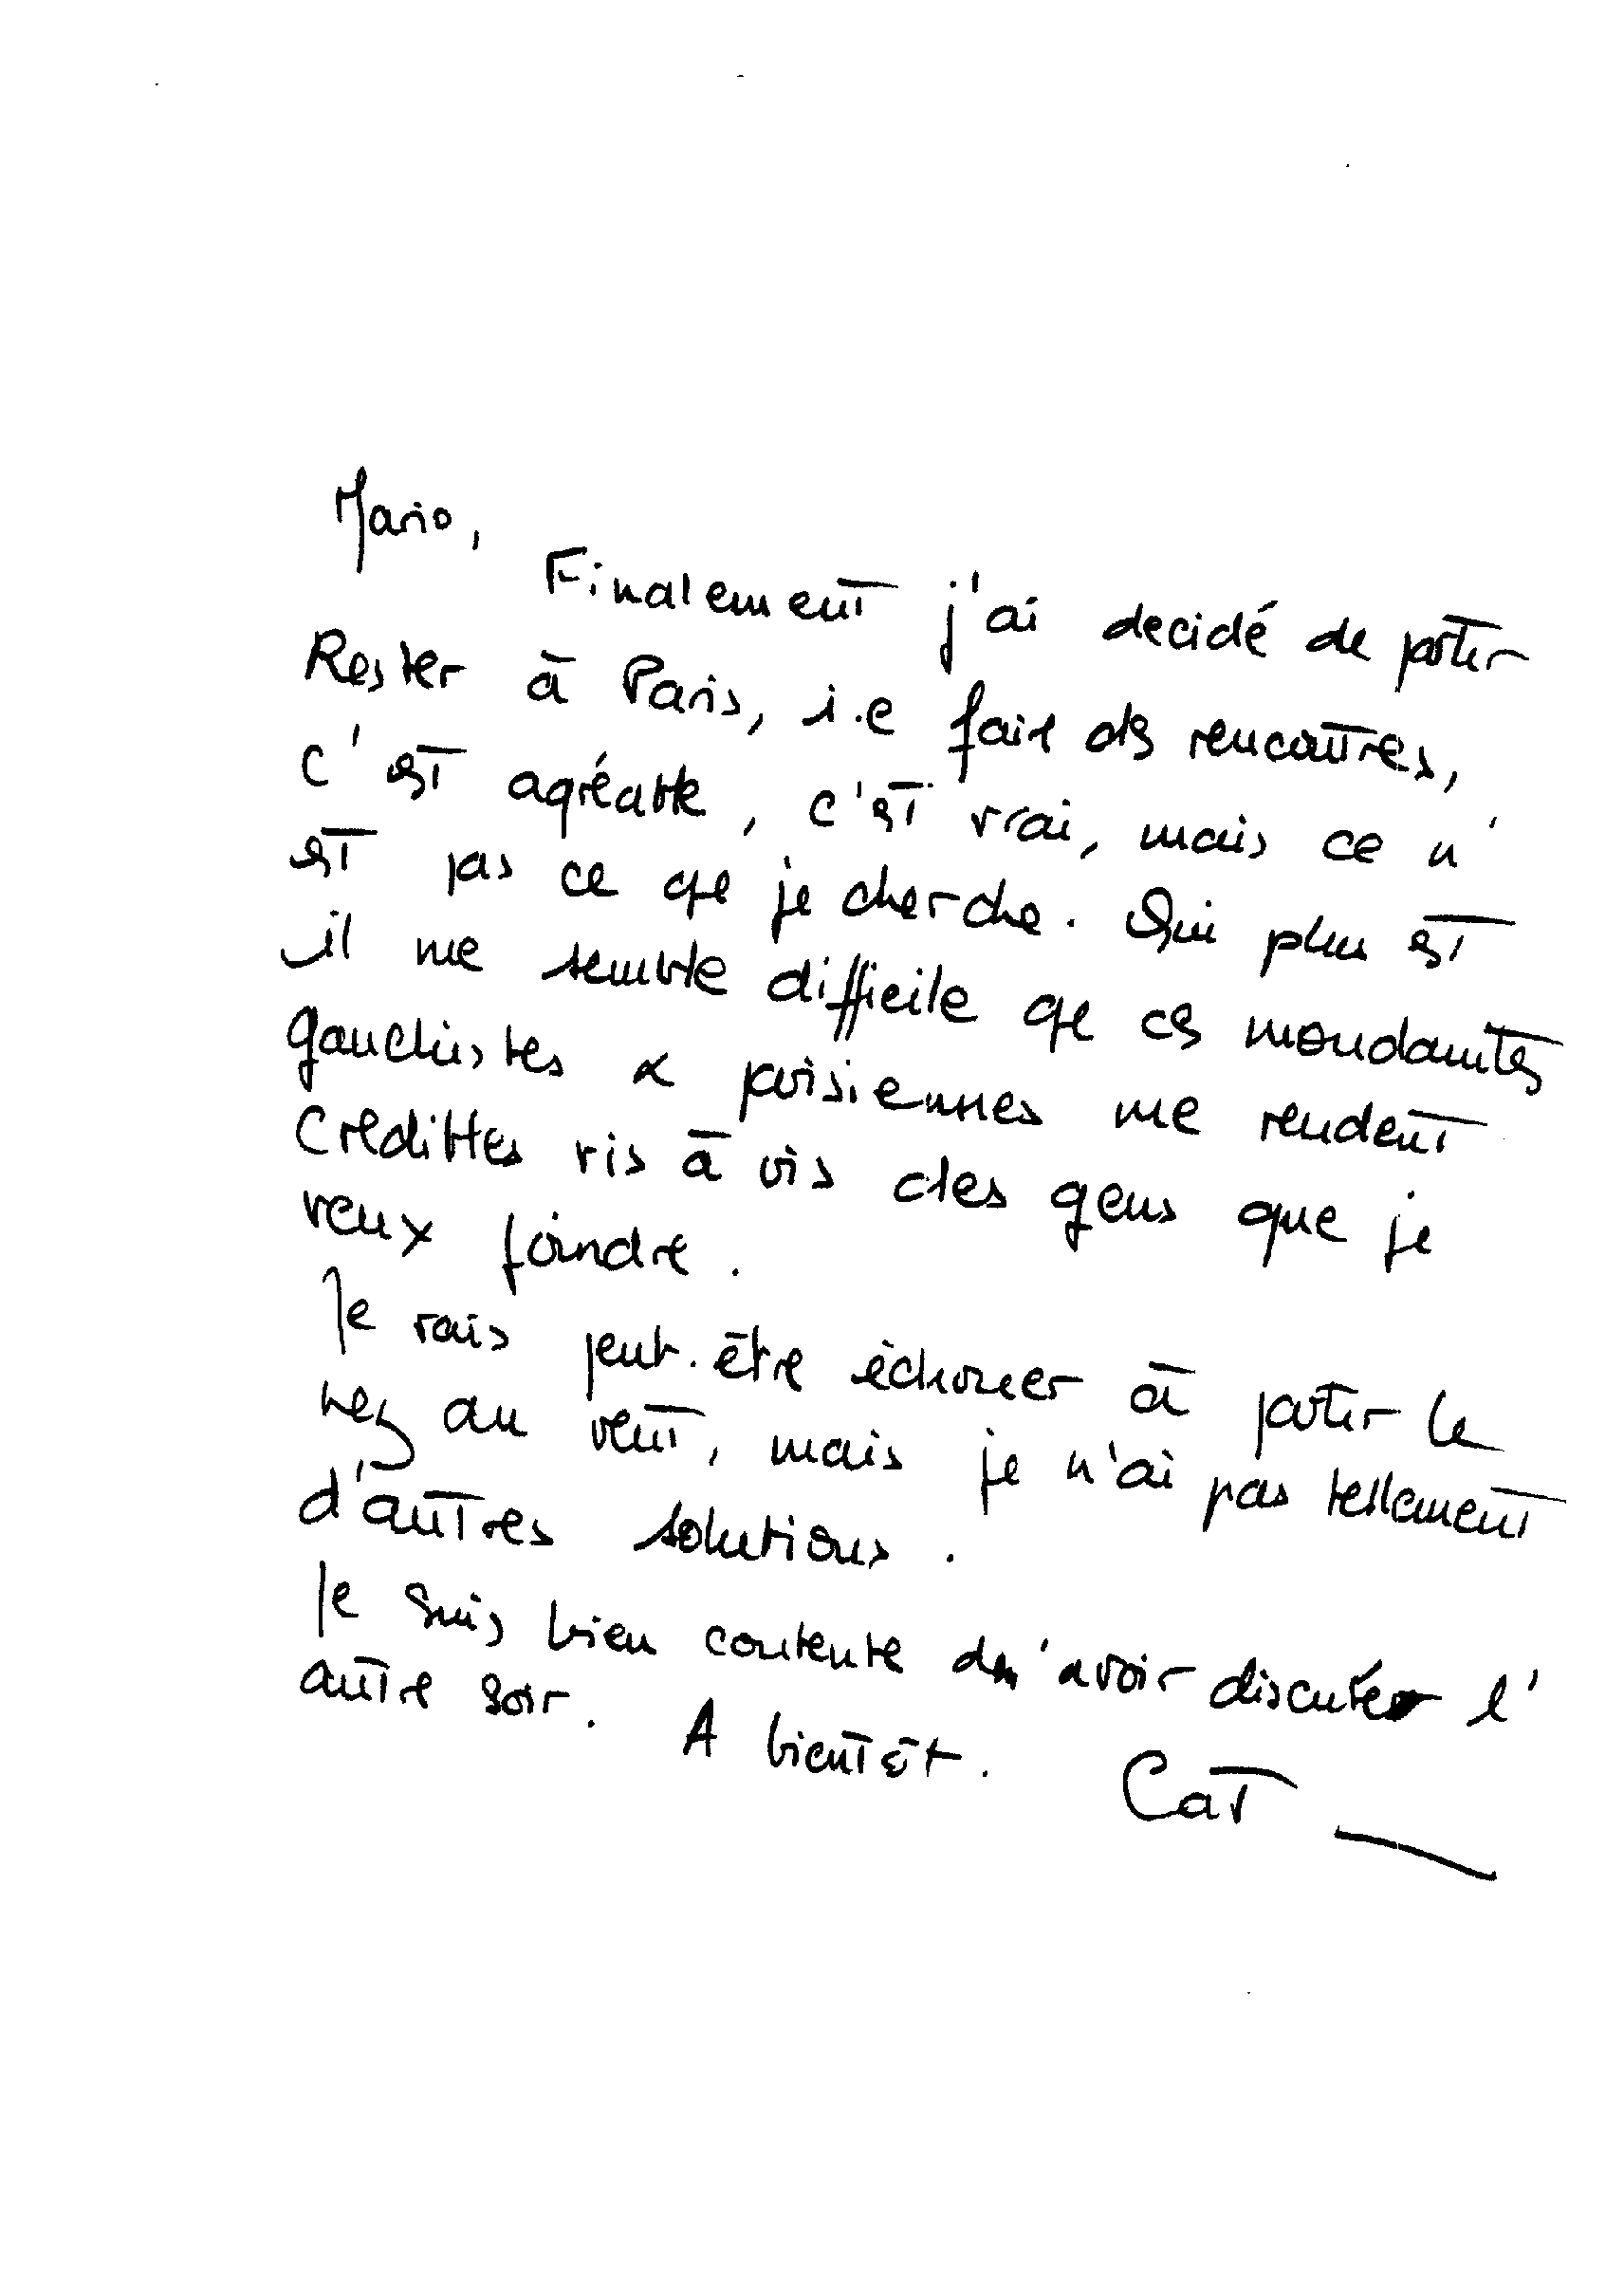 Mario,
Finalement j'ai decidé de partir
Rester à Paris, i.e faire des rencontres,
c'est agréable, c'est vrai, mais ce n'
est pas ce que je cherche. Qui plus est
il me semble difficile que ces mondanités
gauchistes & parisiennes me rendent
credibles vis à vis des gens que je
veux joindre.
Je vais peut-être échouer à partir le
nez au vent, mais je n'ai pas tellement
d'autres solutions.
Je suis bien contente d'avoir discuté l'
autre soir. A bientôt. Cat